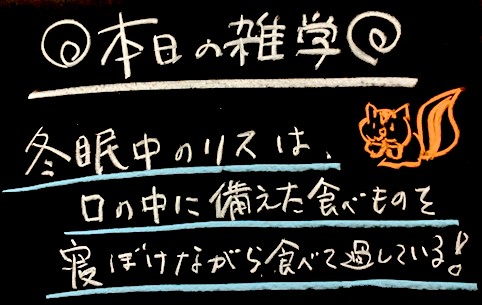 本日の雑学
冬眠中のリスは、
口の中に備えた食べものを
寝ぼけながら食べて過している!